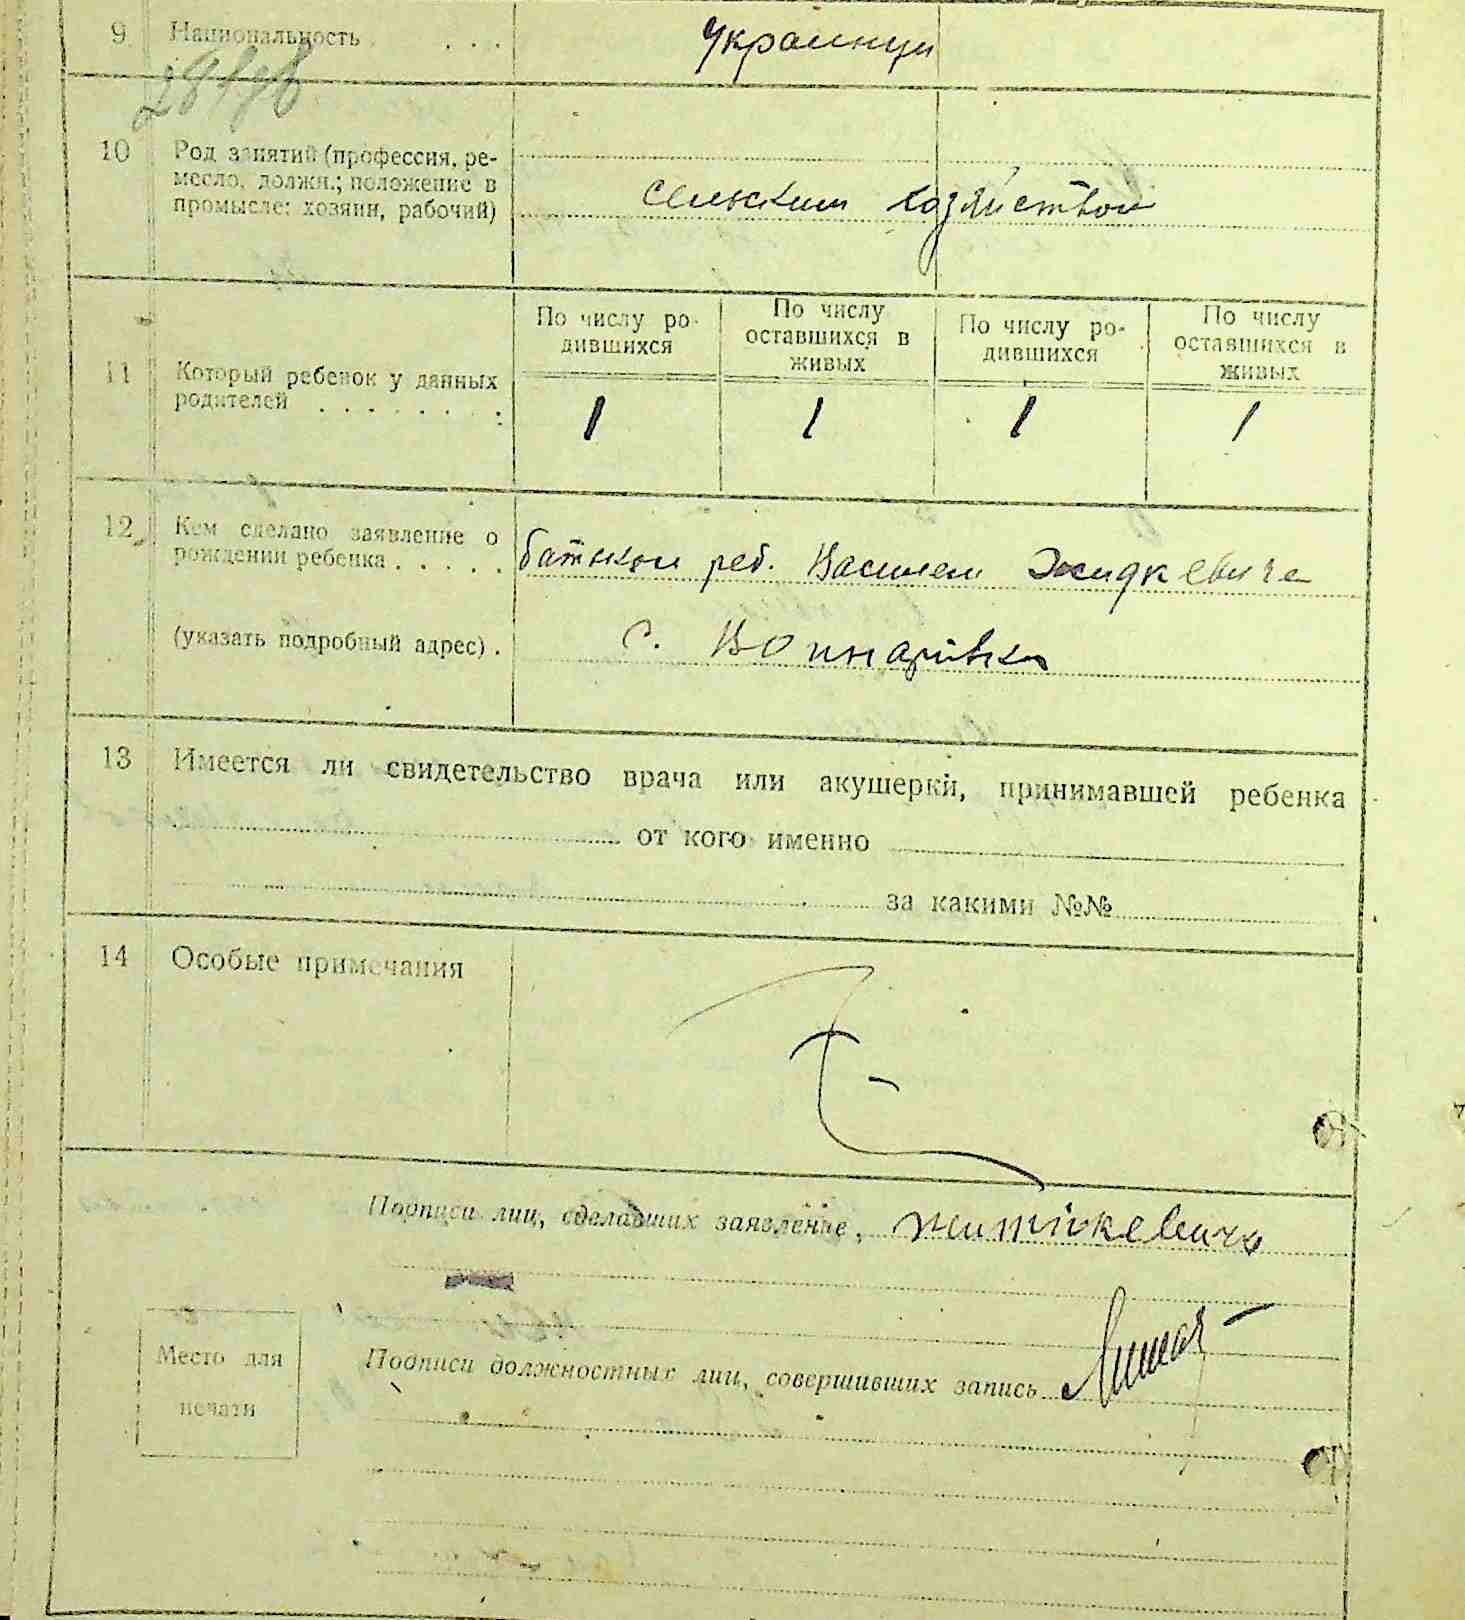 9 Национальность . . . украинци
10 Род занятий (профессия, ре-
месло, должн.; положение в
промысле: хозяин, рабочий)
сельским хозяйством
По числу ро-
дившихся
По числу
оставшихся в
живых
По числу ро-
дившихся
По числу
оставшихся в
живых
11 Который ребенок у данных
родителей . . . . . . . :
1 1 1 1
12 Кем сделано заявление о
рождении ребенка . . . . .
батьком реб. Василем Жидкевиче
(указать подробный адрес) .
с. Войнарівка
13 Имеется ли свидетельство врача или акушерки, принимавшей ребенка
от кого именно
за какими №№
14 Особые примечания
Подписи лиц, сделавших заявление, Житкевичо
Место для
печати
Подписи должностных лиц, совершивших запись